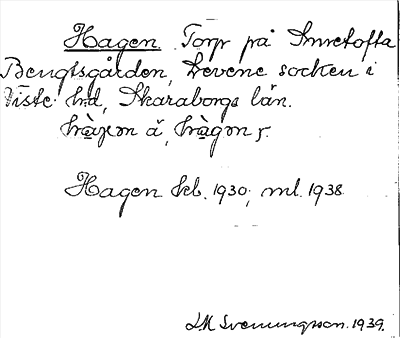 Hagen. Torp på Smretofta
Bengtsgården, Levene socken i
Viste hd, Skaraborgs län.
hàgen ä,
Hagen kb. 1930, ml. 1938
Svenungsson. 1939.